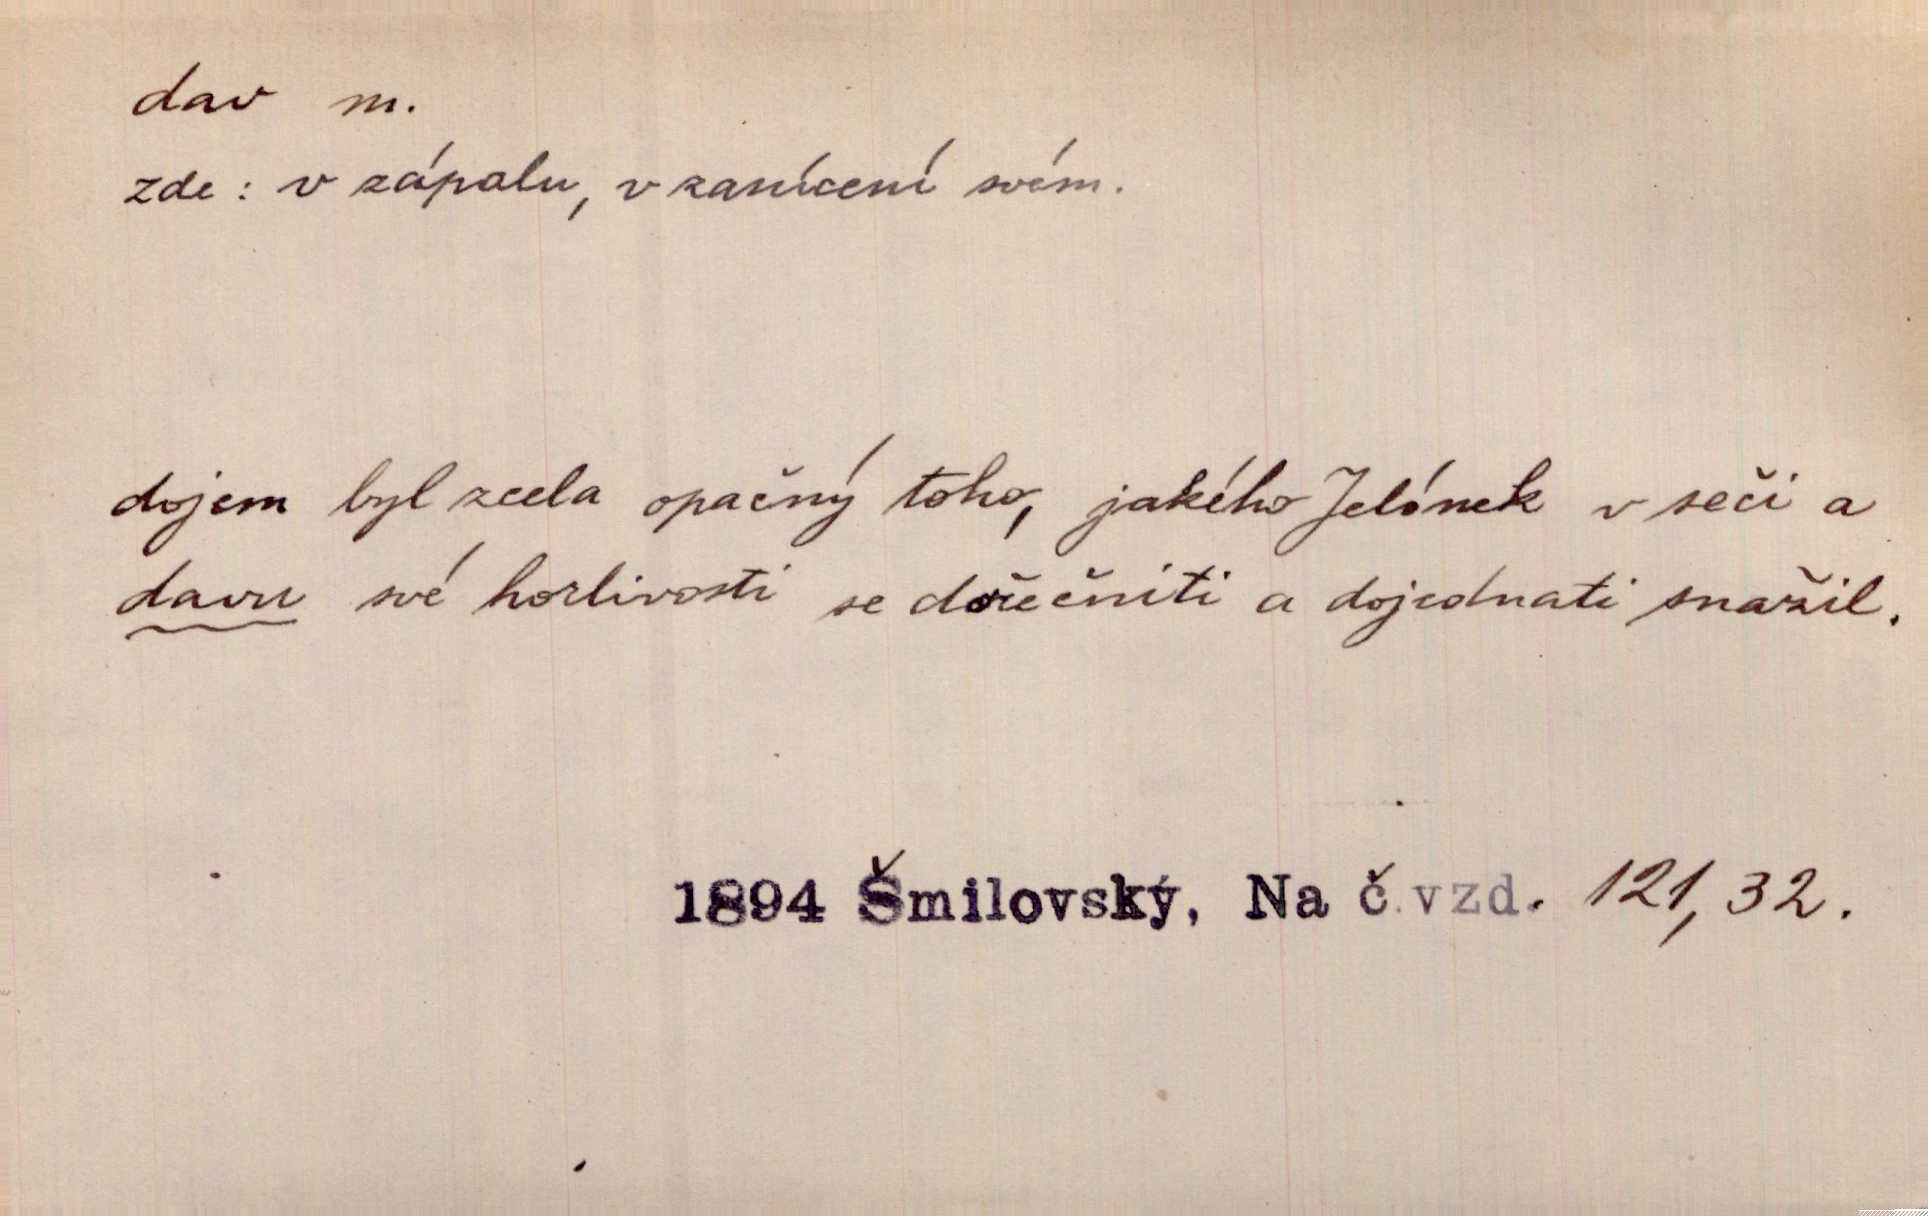 dav m.
zde : v zápalu, v zanícení svém.
dojem byl zcela opačný toho, jakého Jelínek v seči a
davu své horlivosti se dořečniti a dojednati snažil.
1894 Šmilovský, Na č. vzd. 121, 32.